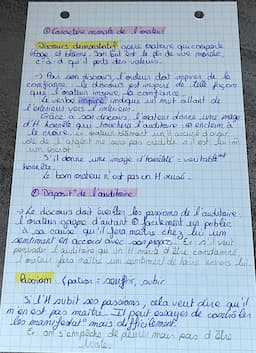 ① Caractère morale de l'orateur
Discours démonstratif
éloge et blâme. Son but est le pt de vue morale,
c-à-d qui porte des valeurs.
-> Par son discours, l'orateur doit inspirer de la
confiance. Le discours est inspiré de telle façon
que l'orateur inspire la confiance.
Le verbe inspirer indique un mvt allant de
l'extérieur vers l'intérieur.
Grâce à son discours, l'orateur donne une image
d'H honnête qui touchera l'auditoire
le croire.
S'il donne une image d'honnête =
honnête.
Le bon orateur n'est pas un H
② Disposit° de l'auditoire
-> Le discours doit éveiller les passions de l'auditoire
l'orateur gagne d'autant + facilement un public
à sa cause qu'il fera naître chez lui un
sentiment en accord avec ses propos. Ex: s'il veut
persuader l'auditoire qu'un H mérite d'être condamné
l'orateur fera naître un sentiment de haine envers lui.
Passion: (patior = souffrir, subir
Si l'H subit ses passions, cela veut dire qu'il
n'en est pas maître. Il peut essayer de contrôler
les manifestat° mais difficilement.
Ex: on s'empêche de pleurer mais pas d'être
triste.